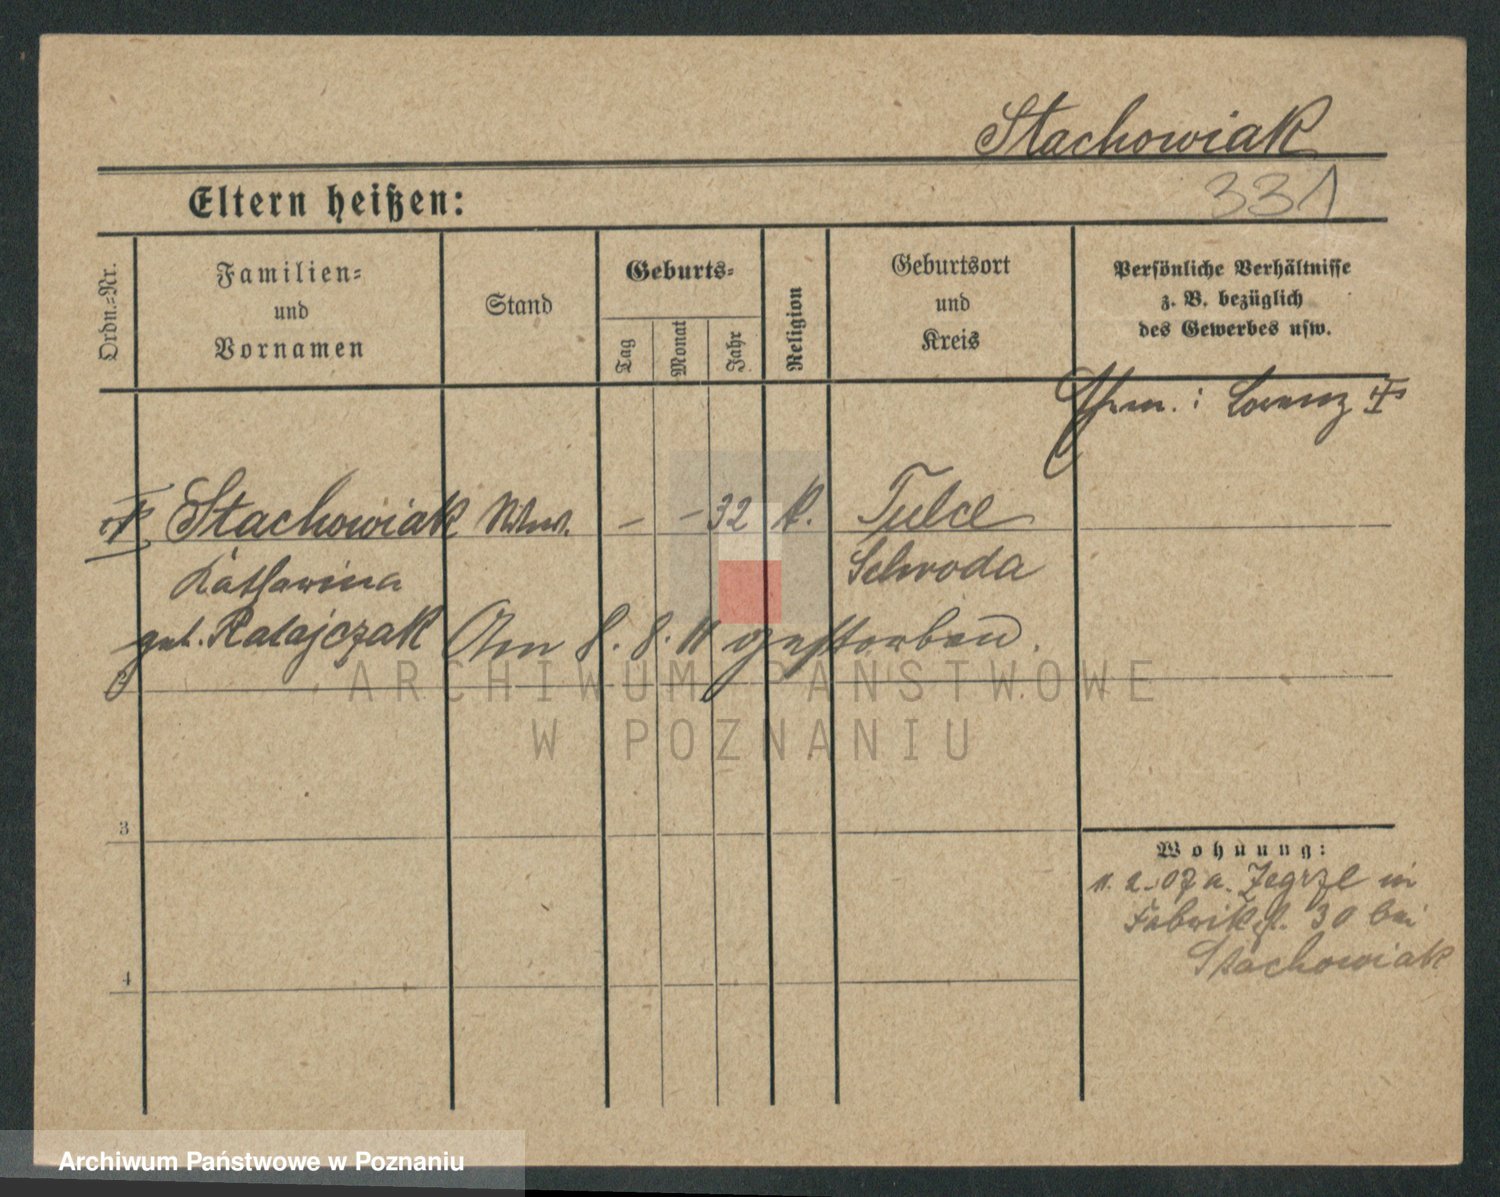 Stachowiak
331
Eltern heißen:
Ordn.-Nr.
Familien-
und
Vornamen
Stand
Geburts-
Tag
Monat
Jahr
Religion
Geburtsort
und
Kreis
Persönliche Verhältnisse
z. B. bezüglich
des Gewerbes usw.
Ehem. : Lorenz
Stachowiak Wwe. - - 32 k. Tulce
Katharina Schroda
geb. Ratajczak Am 8. 8. 11 gestorben.
ARCHIWUM PAŃSTWOWE
W POZNANIU
3
Wohnung:
1. 2. 07 a. Zegrze in
Fabrikst. 30 bei
Stachowiak
4
Archiwum Państwowe w Poznaniu